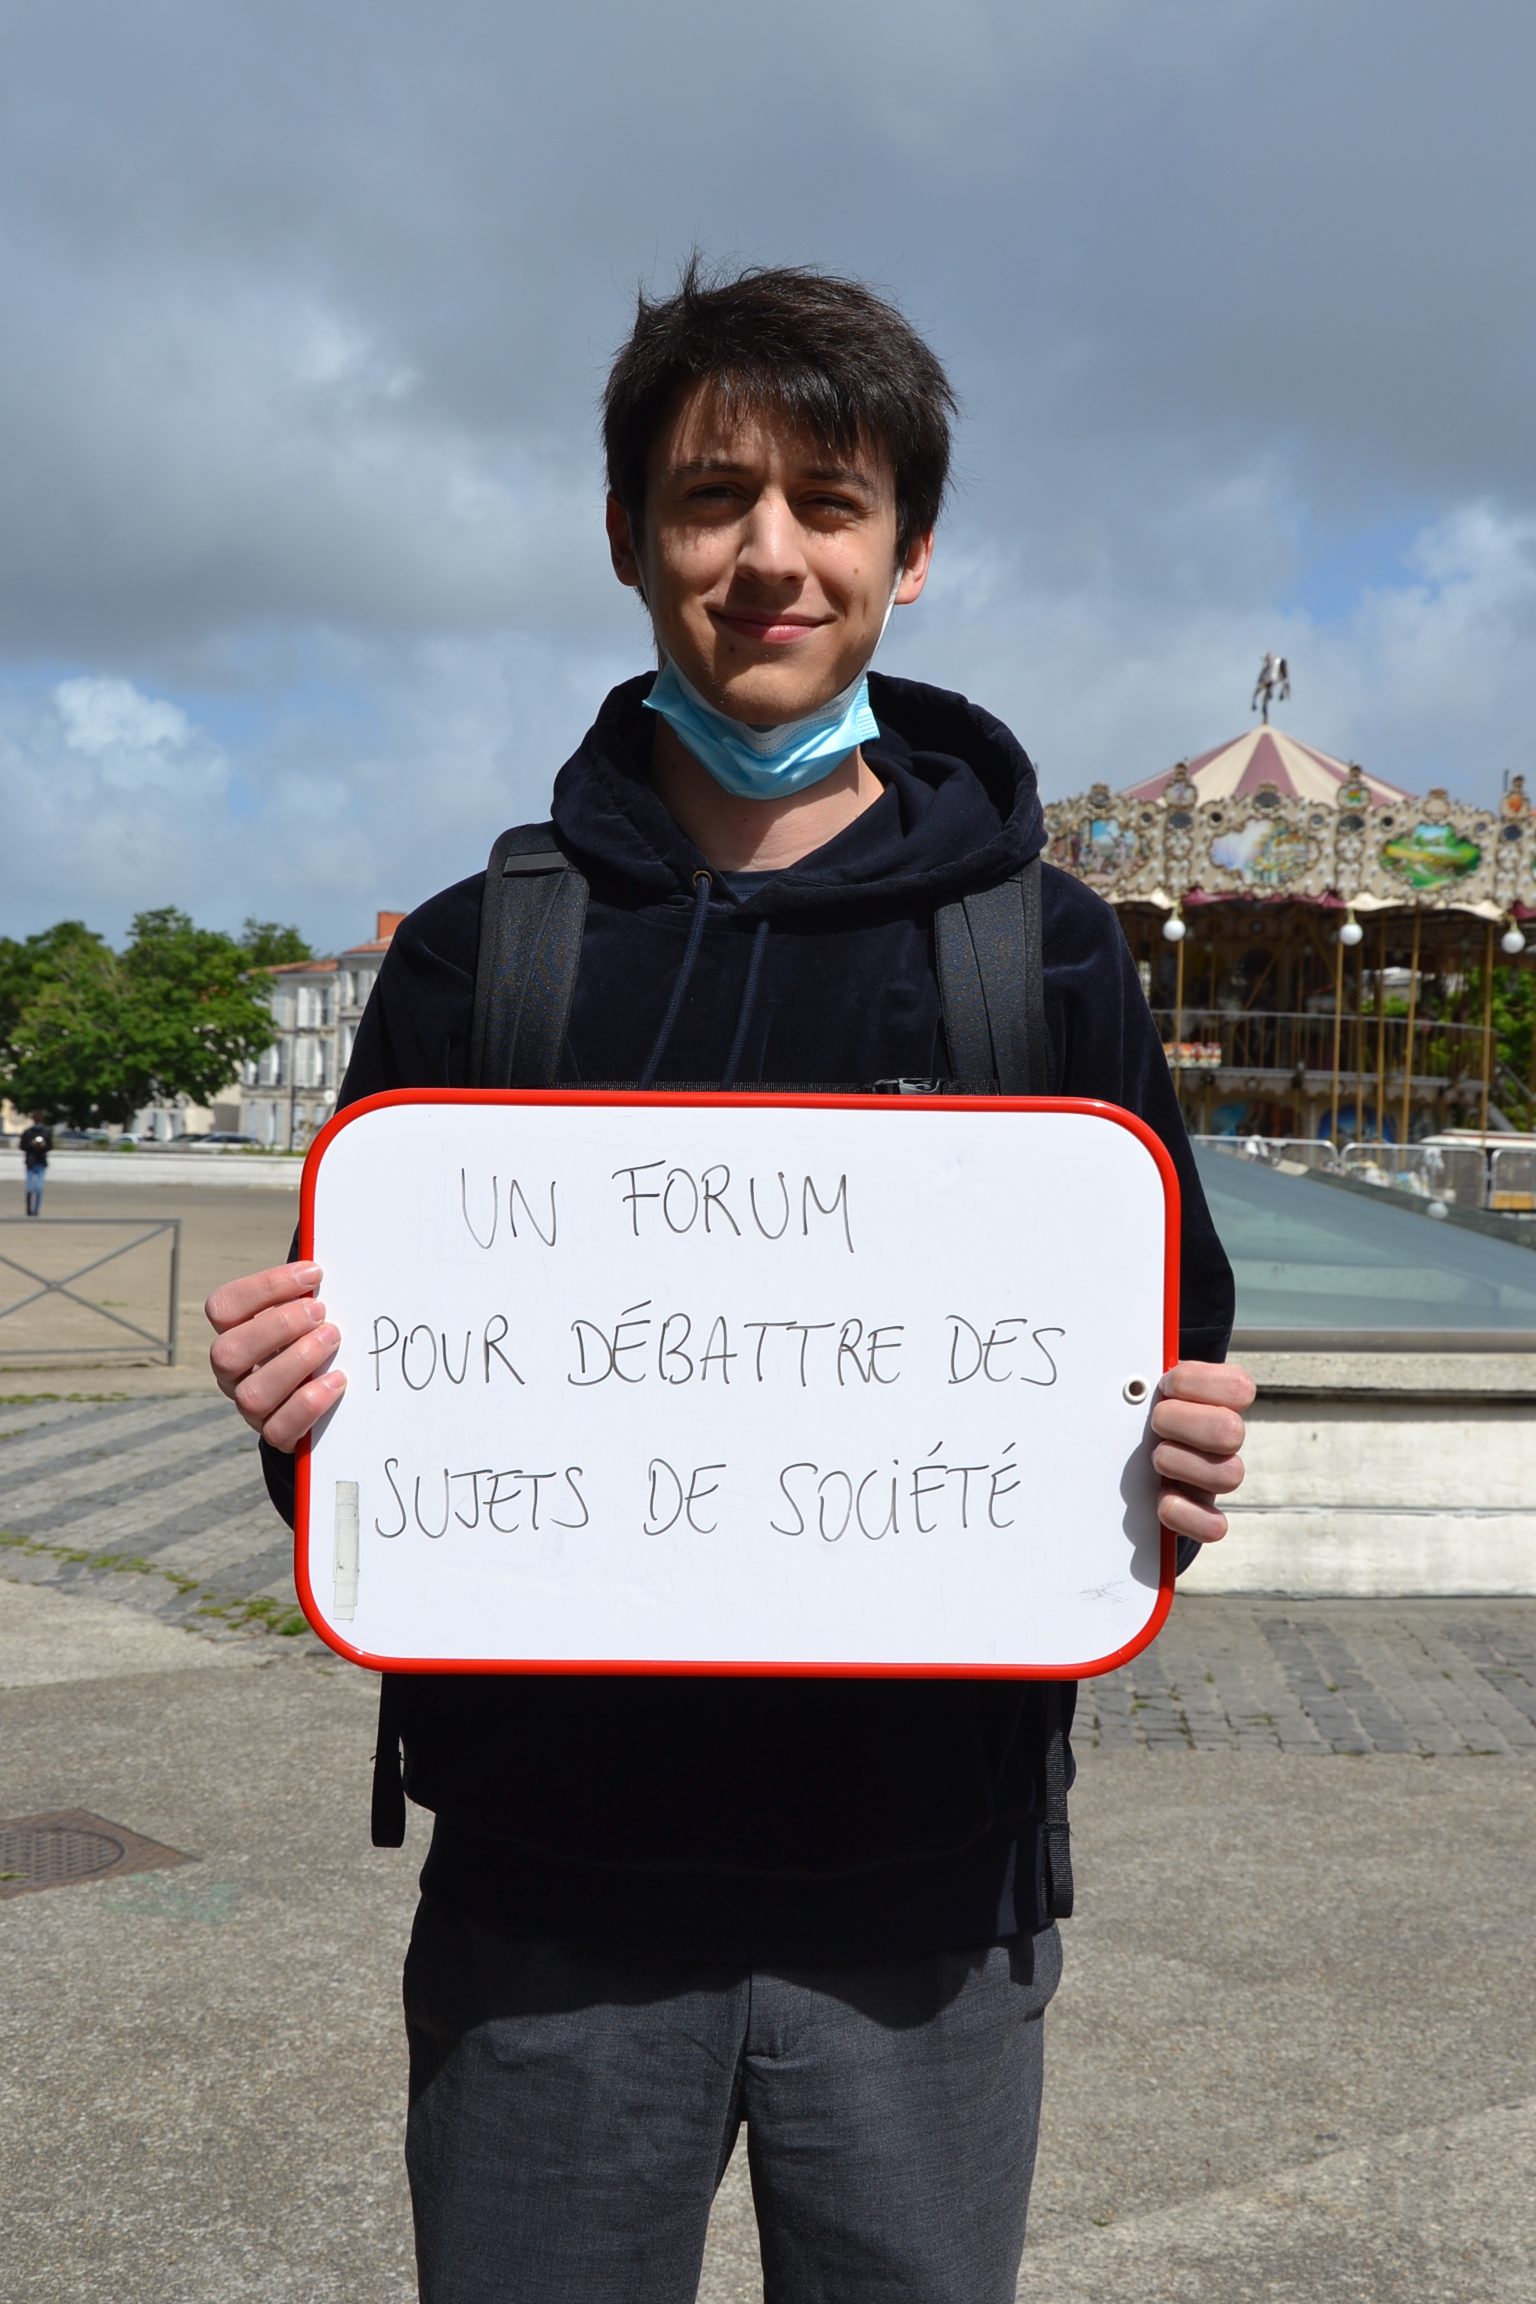 UN FORUM
POUR DÉBATTRE DES
SUJETS DE SOCIÉTÉ